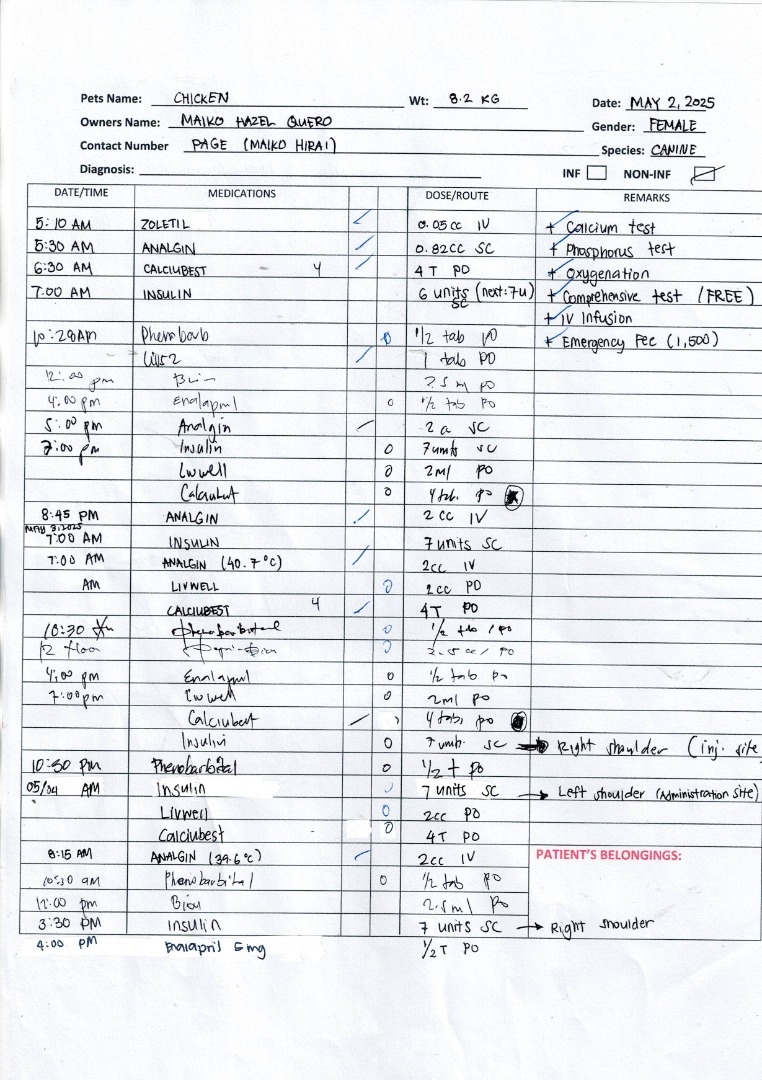 Pets Name: CHICKEN Wt: 8.2 KG Date: MAY 2, 2025
Owners Name: MAIKO HAZEL QUERO Gender: FEMALE
Contact Number PAGE (MAIKO HIRAI) Species: CANINE
Diagnosis: INF NON-INF
DATE/TIME MEDICATIONS DOSE/ROUTE REMARKS
5:10 AM ZOLETIL 0.05cc IV + Calcium test
5:30 AM ANALGIN 0.82cc SC + Phosphorus test
6:30 AM CALCIUBEST 4 4 T PO + Oxygenation
7:00 AM INSULIN 6 units (next: 7u) SC + Comprehensive test (FREE)
+ IV Infusion
10:28AM Phenobarb 1/2 tab PO + Emergency Fee (1,500)
1 tab PO
12:00 pm po
4:00 pm Enalapril 1/2 tab PO
5:00 pm Analgin SC
7:00 pm Insulin 7 units SC
Livwell 2ml PO
Calciubest 4 tab. po
8:45 PM ANALGIN 2 CC IV
MAY 3, 2025
7:00 AM INSULIN 7 units SC
7:00 AM ANALGIN (40.7°C) 2cc IV
AM LIVWELL 2cc PO
CALCIUBEST 4 4T PO
10:30 Phenobarbital 1/2 tab / po
po
4:00 pm Enalapril 1/2 tab po
7:00pm Livwell 2ml po
Calciubest 4 tabs po
Insulin 7 units SC Right shoulder (inj. site
10:30 PM Phenobarbital 1/2 t po
05/04 AM Insulin 7 units SC → Left shoulder (Administration site)
Livwell 2cc PO
Calciubest 4T PO
8:15 AM ANALGIN (39.6°C) 2cc IV PATIENT'S BELONGINGS:
10:30 am Phenobarbital 1/2 tab po
12:00 pm 2.5ml Po
3:30 PM Insulin 7 units SC → Right shoulder
4:00 PM Enalapril 5mg 1/2 T PO